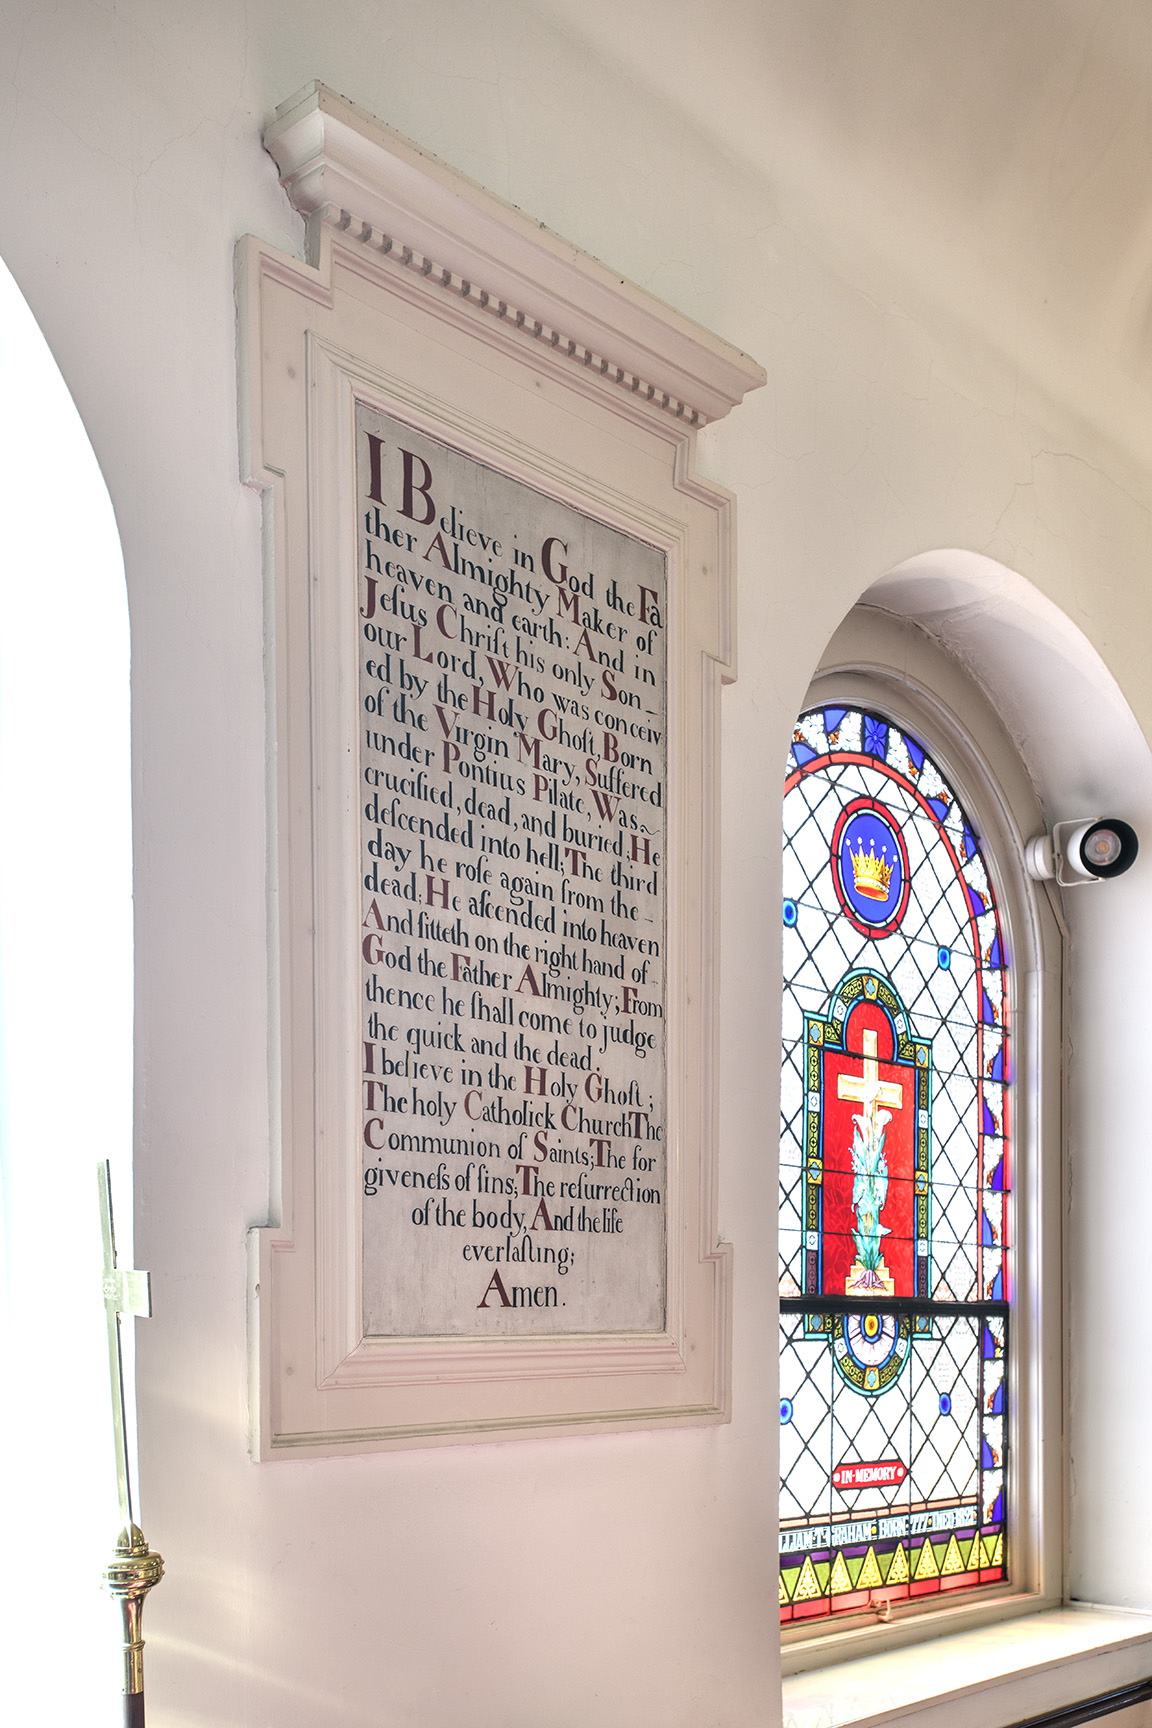 I Believe in God the Fa
ther Almighty Maker of
heaven and earth: And in
Jeſus Chriſt his only Son_
our Lord, Who was conceiv
ed by the Holy Ghoſt, Born
of the Virgin Mary, Suffered
under Pontius Pilate, Was~
crucified, dead, and buried; He
deſcended into hell; The third
day he roſe again from the -
dead; He aſcended into heaven
And ſitteth on the right hand of -
God the Father Almighty; From
thence he ſhall come to judge
the quick and the dead.
I believe in the Holy Ghoſt;
The holy Catholick Church The
Communion of Saints; The for
giveneſs of ſins; The reſurrection
of the body, And the life
everlaſting;
Amen.
IN MEMORY
BORN DIED